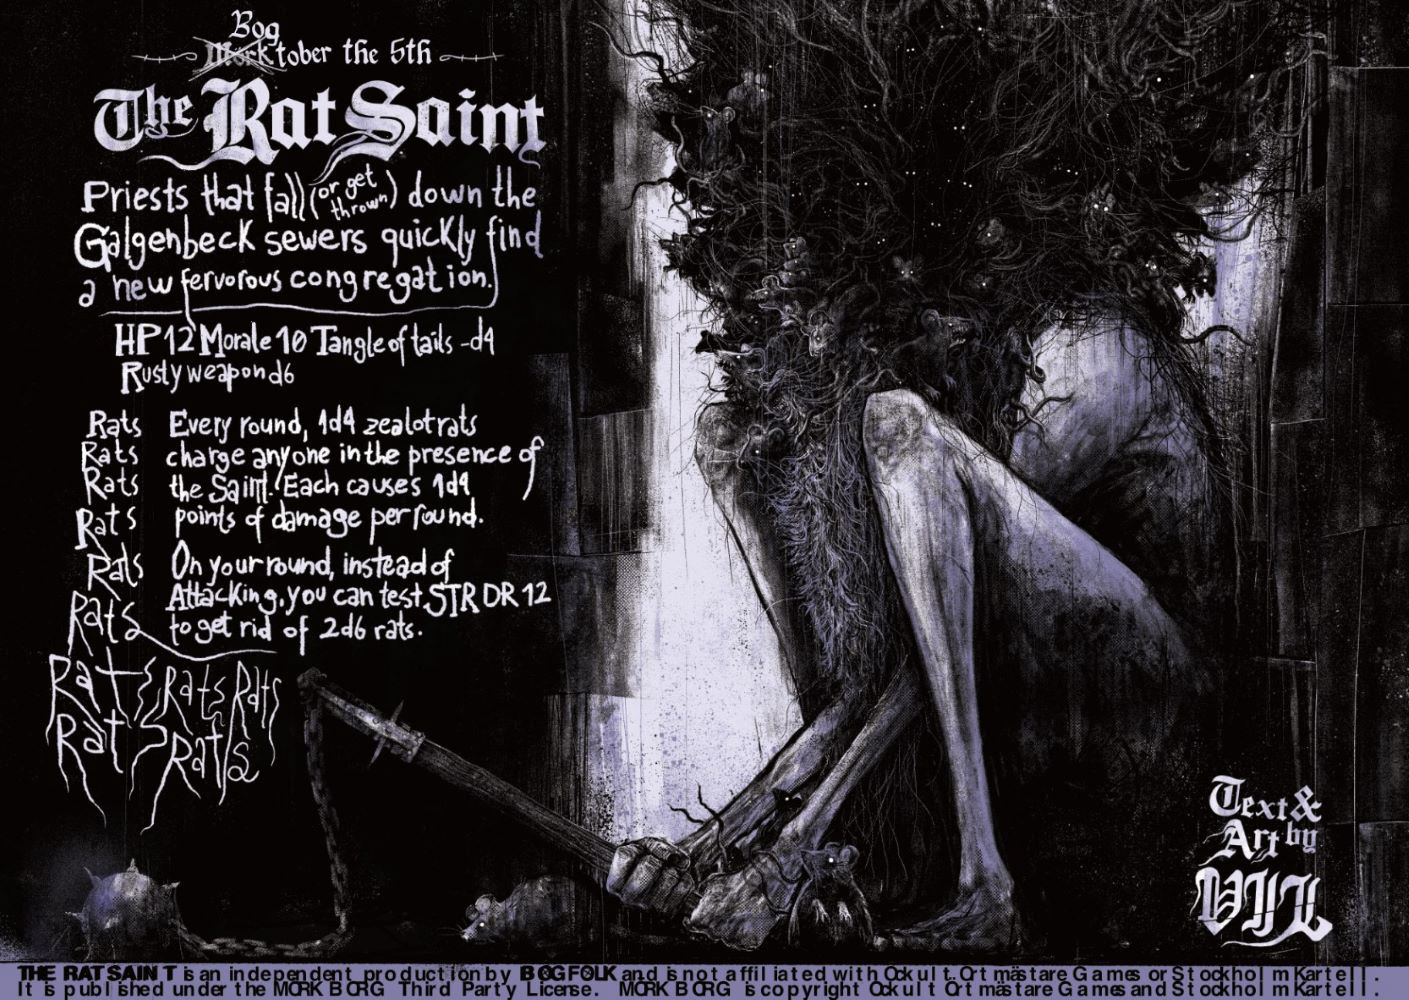 Bog
Mörktober the 5th
The Rat Saint
Priests that fall (or get thrown) down the
Galgenbeck sewers quickly find
a new fervorous congregation.
HP 12 Morale 10 Tangle of tails -d4
Rusty weapon d6
Rats Every round, 1d4 zealot rats
Rats charge anyone in the presence of
Rats the Saint. Each causes 1d4
Rats points of damage per round.
Rats On your round, instead of
Attacking, you can test STR DR 12
Rats to get rid of 2d6 rats.
Rats Rats Rats
Rats Rats
Text &
Art by
VIL
THE RAT SAINT is an independent production by BOGFOLK and is not affiliated with Ockult Örtmästare Games or Stockholm Kartell.
It is published under the MÖRK BORG Third Party License. MÖRK BORG is copyright Ockult Örtmästare Games and Stockholm Kartell.